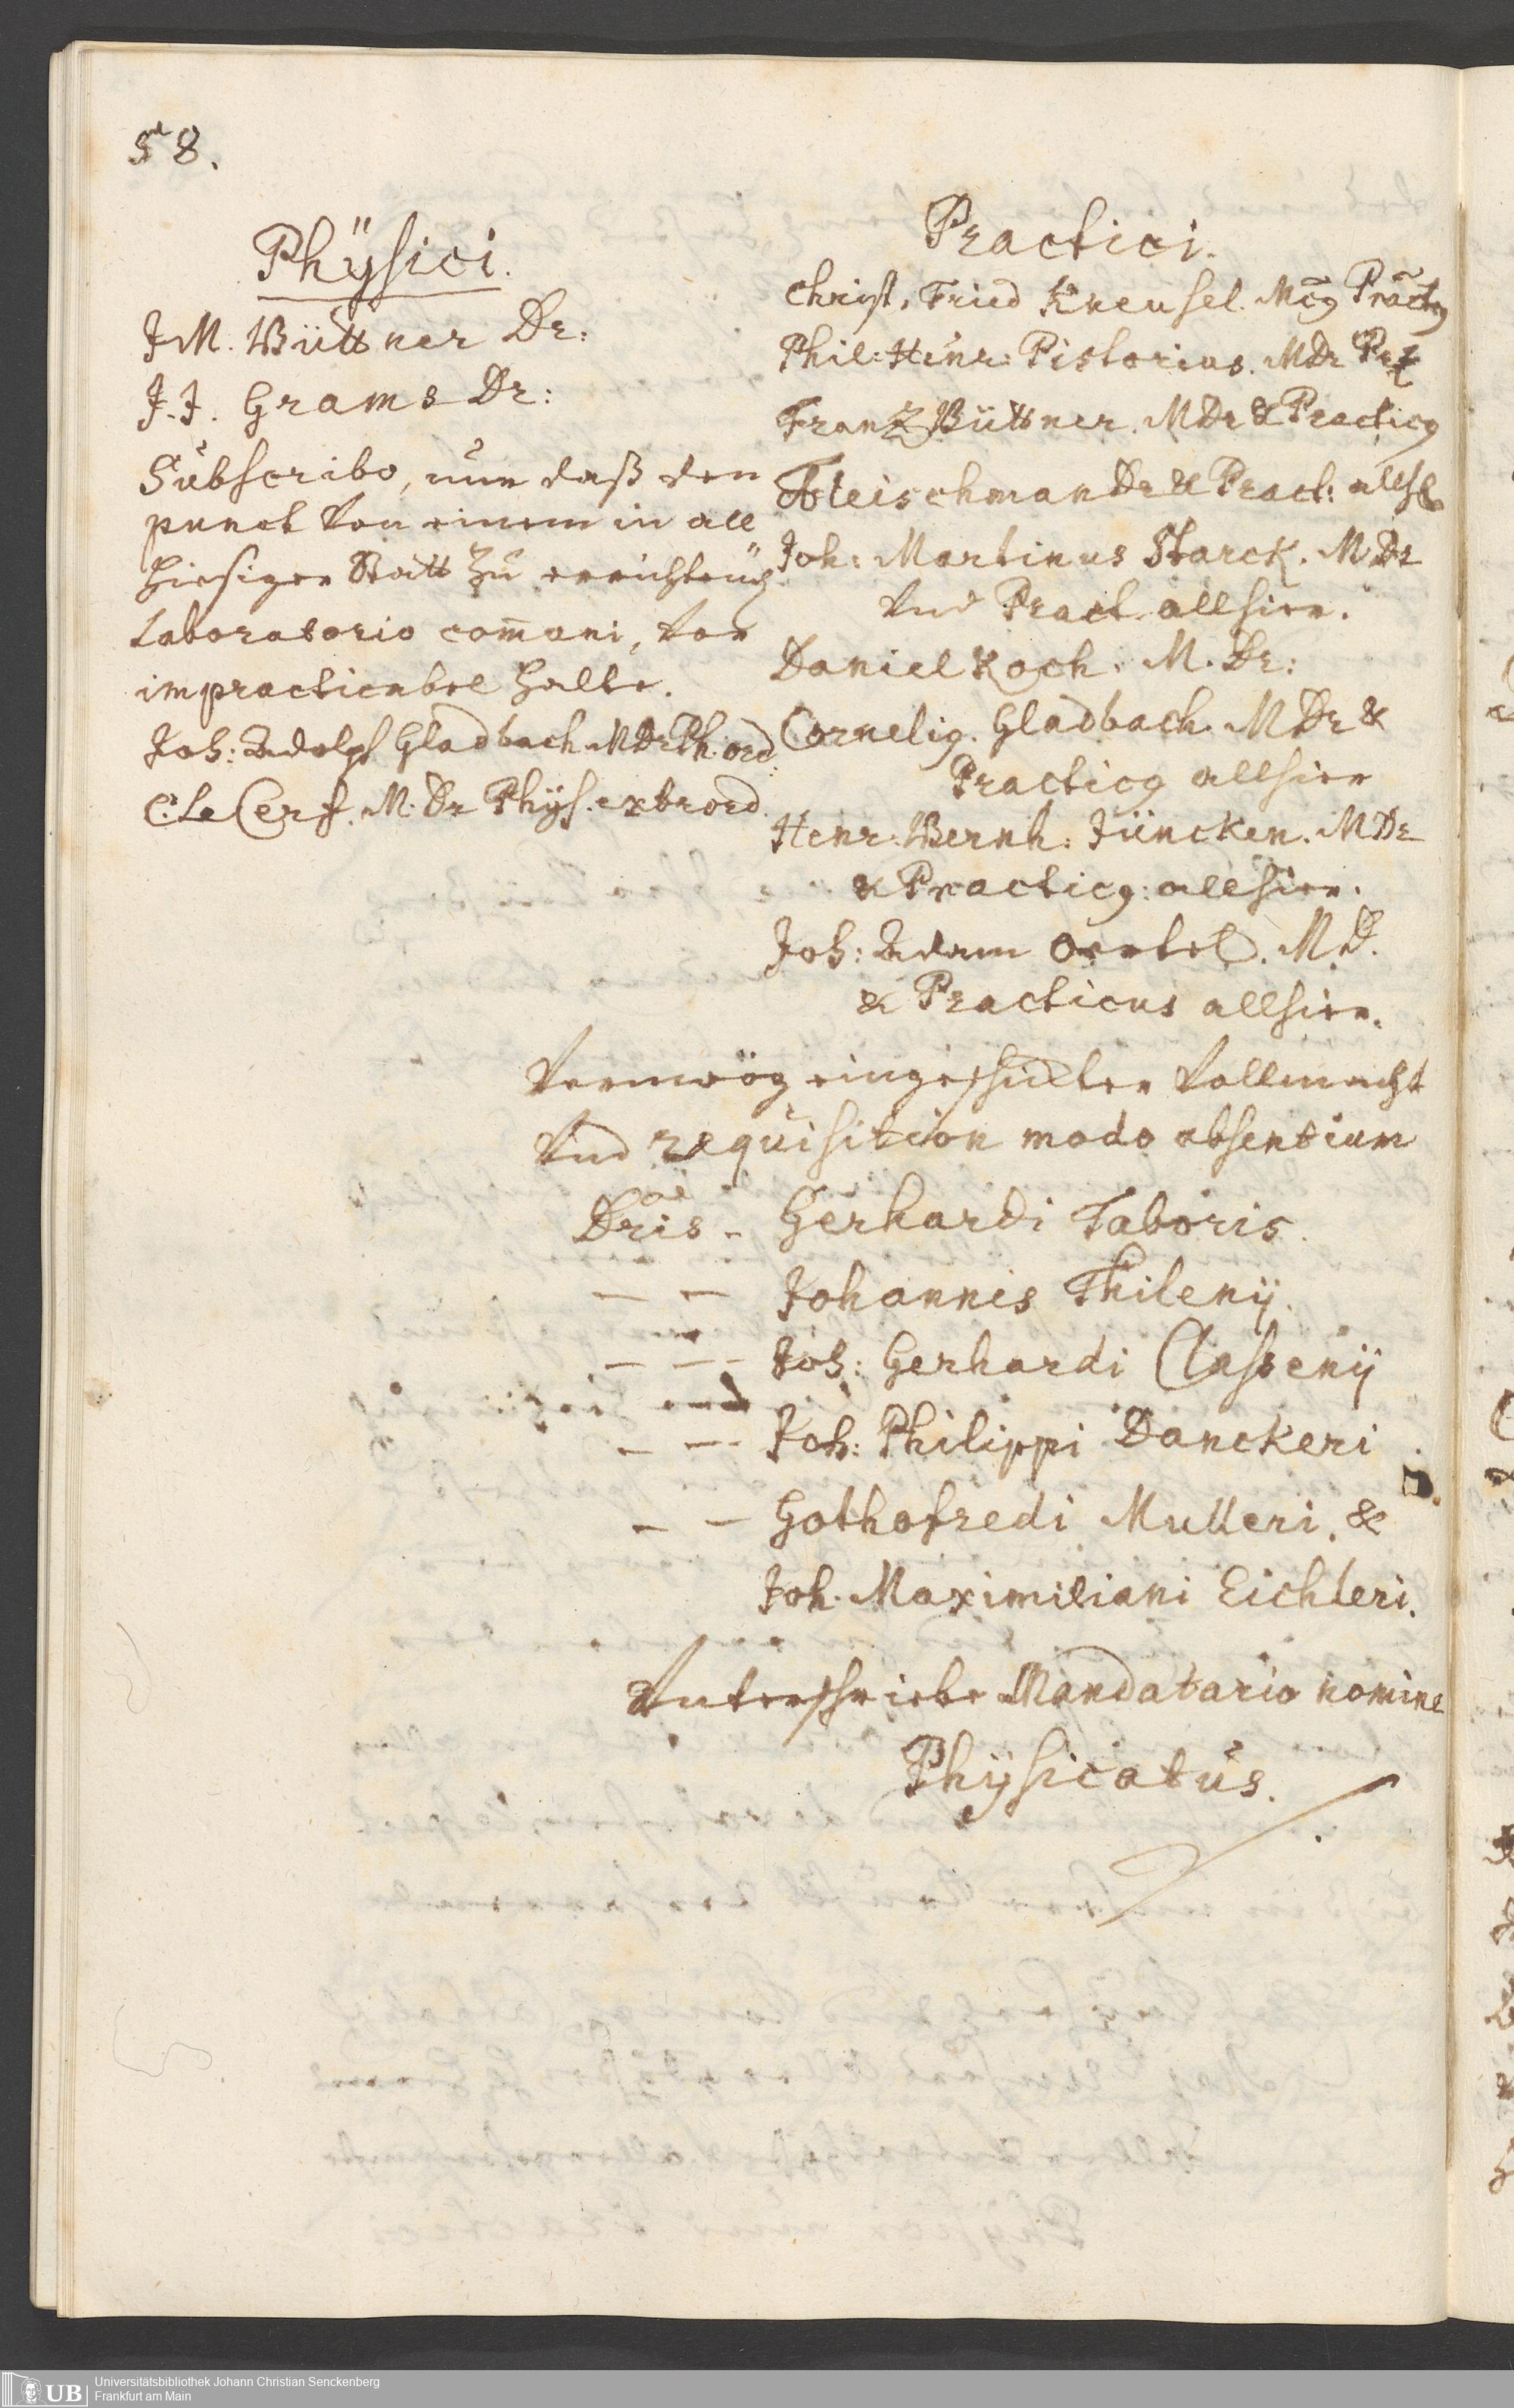 58.
Phÿsici.
J M. Büttner Dr:
J. J. Grams Dr:
Subscribo, nur daß den
punct von einem in all
hiesiger Statt zu errichten
Laboratorio com̄uni, vor
impracticabel halte.
Joh: Adolph Gladbach MDr Ph. ord:
C. Le Cerf. M. Dr Phÿs. extraord.
Practici.
Christ. Fried Kneusel.
Phil: Henr: Pistorius. MDr
Franz Büttner. MDr & Practicq
Fleischman Dr & Pract: allh
Joh: Martinus Starck. M Dr
Vnd Pract allhier.
Daniel Koch. M. Dr:
Cornelig. Gladbach. MDr &
Practicq allhier
Henr. Bernh: Jüncken. MDr
& Practicq: allhier.
Joh: Adam Oertel. M D.
& Practicus allhier.
Vermög eingeschickter Vollmacht
Vnd requisition modo absentium
Dris - Gerhardi Taboris.
— — Johannis Thilenÿ.
— — Joh: Gerhardi Classenÿ
— — Joh: Philippi Danckeri
— — Gothofredi Mulleri, &
Joh. Maximiliani Eichleri.
Vnterschriebe Mandatario nomine
Phÿsicatus.
UB
Universitätsbibliothek Johann Christian Senckenberg
Frankfurt am Main